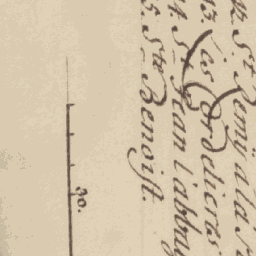 12. St. Remÿ a la
13. Les Cordeliers
4. St. Jean l'abbay
5. Ste Benoist.
30.